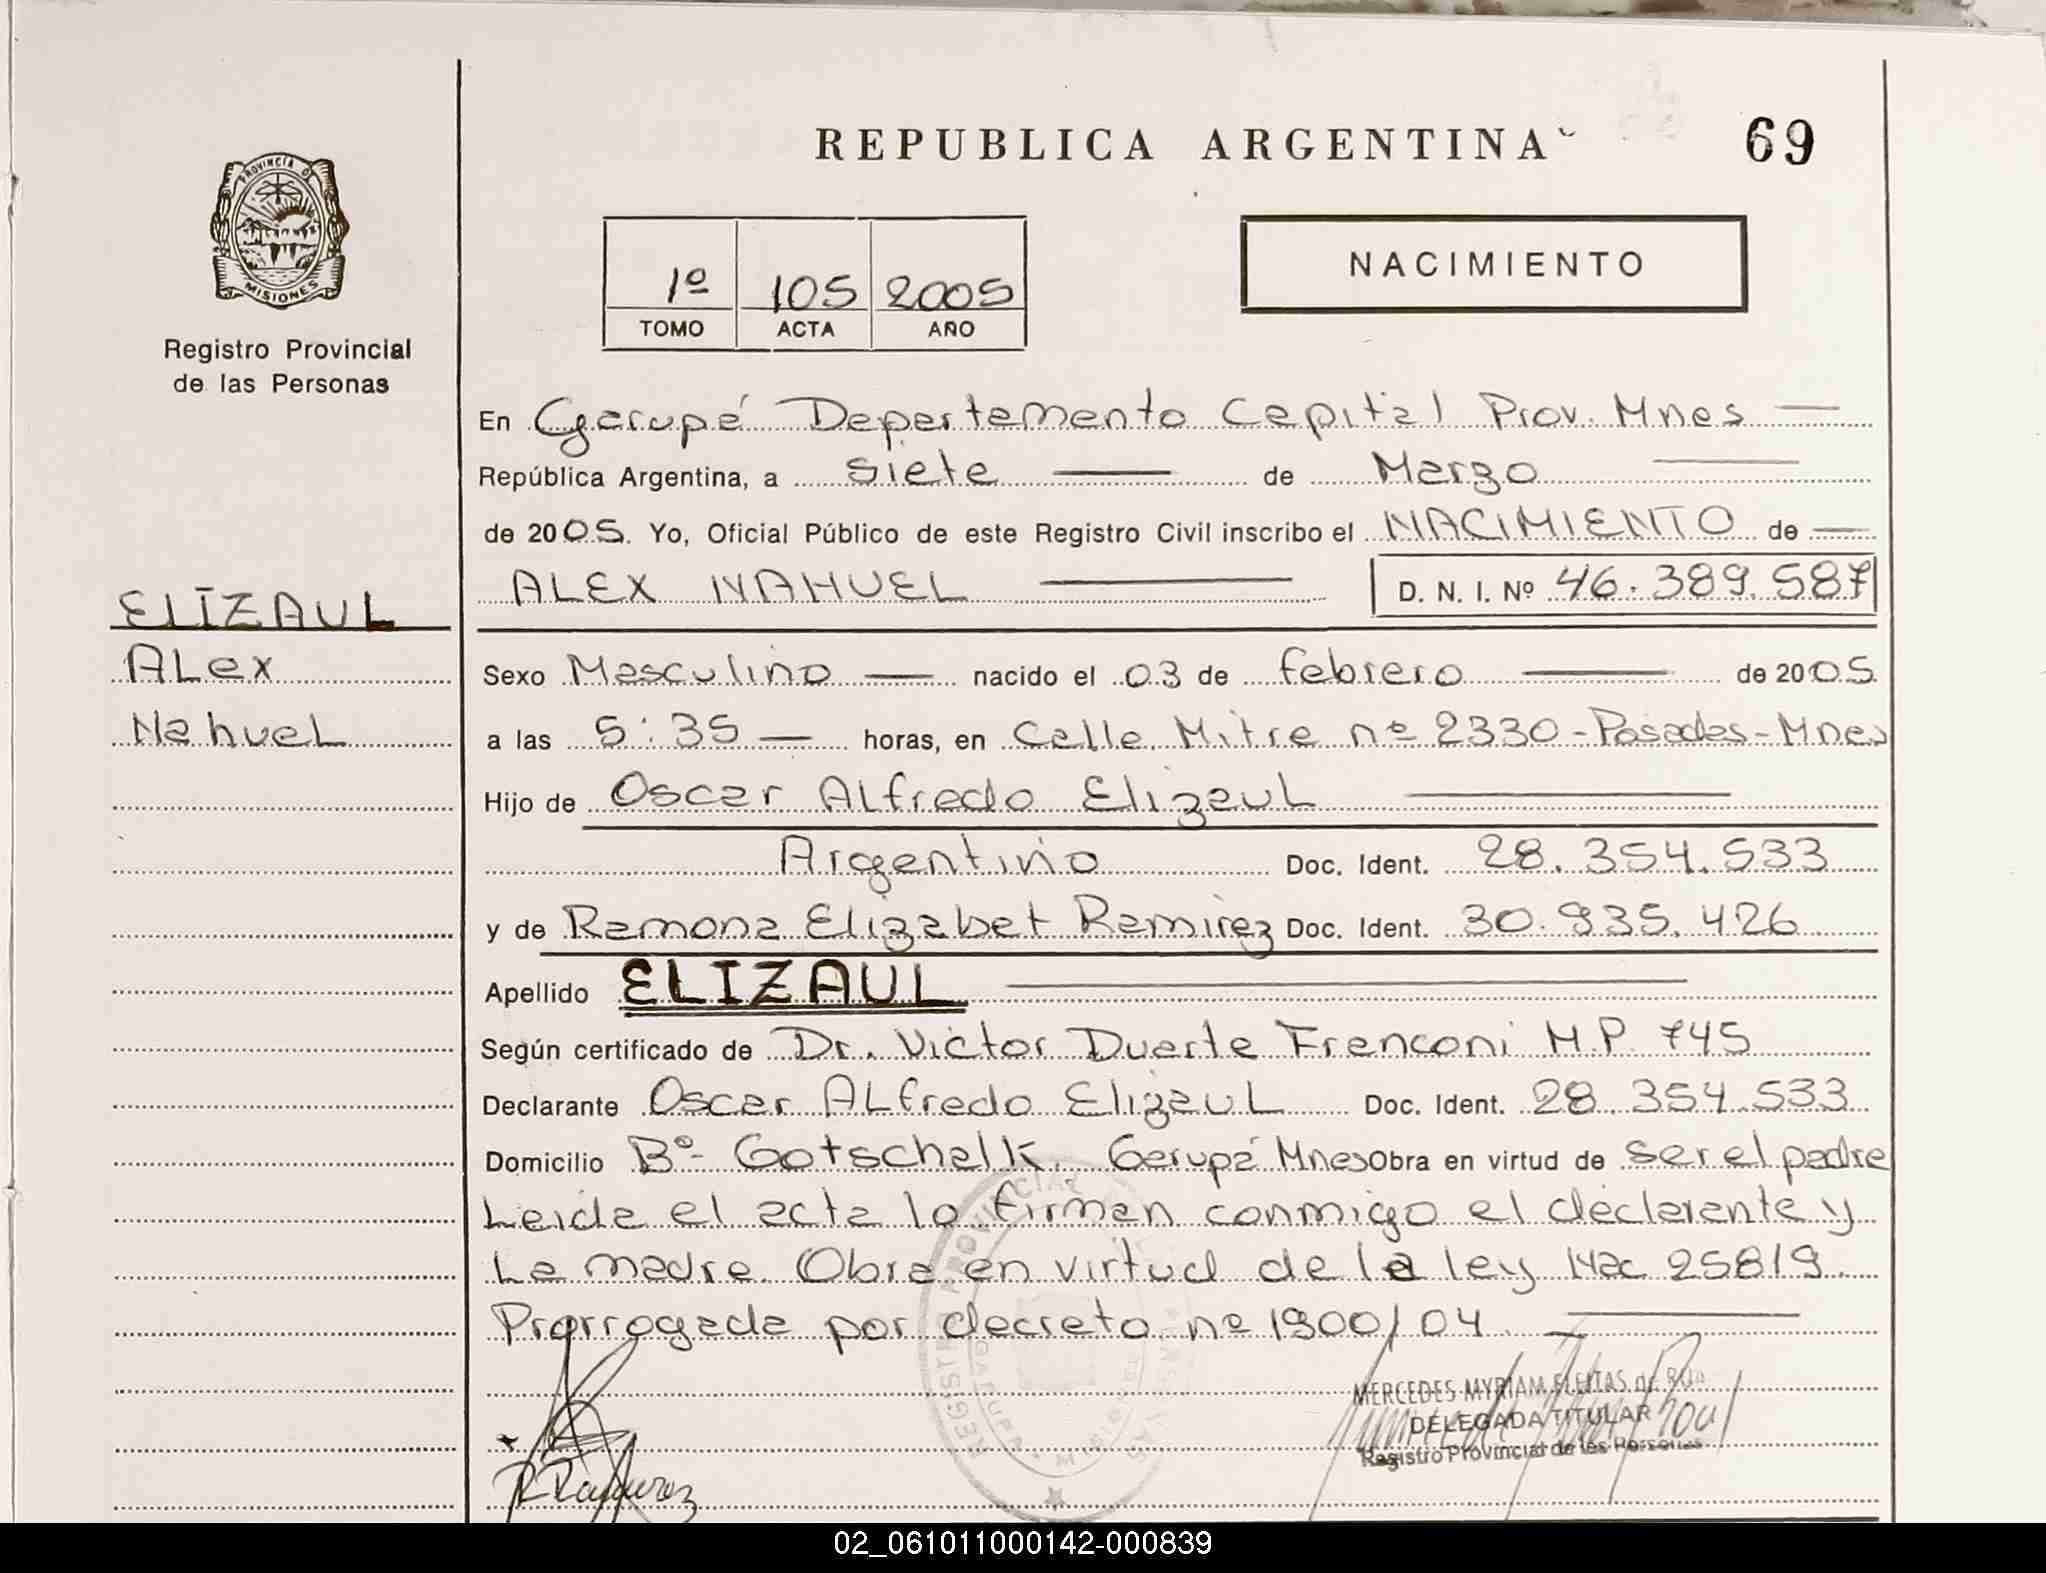 REPUBLICA ARGENTINA
69
PROVINCIA D
MISIONES
Registro Provincial
de las Personas
1º 105 2005
TOMO ACTA AÑO
NACIMIENTO
En Garupé Departamento Capital Prov. Mnes
República Argentina, a siete de Marzo
de 2005. Yo, Oficial Público de este Registro Civil inscribo el NACIMIENTO de
ALEX NAHUEL D. N. I. Nº 46.389.587
ELIZAUL
Alex
Nahuel
Sexo Masculino nacido el 03 de febrero de 2005
a las 5:35 horas, en Calle Mitre nº 2330 - Posadas - Mnes
Hijo de Oscar Alfredo Elizaul
Argentino Doc. Ident. 28.354.533
y de Ramona Elizabet Ramirez Doc. Ident. 30.935.426
Apellido ELIZAUL
Según certificado de Dr. Victor Duarte Franconi M.P. 745
Declarante Oscar Alfredo Elizaul Doc. Ident. 28.354.533
Domicilio Bº- Gotschalk. Garupá Mnes Obra en virtud de ser el padre
Leida el acta lo firman conmigo el declarante y
La madre. Obra en virtud de la ley Nac 25819.
Prorrogada por decreto nº 1900/04
REGISTRO PROVINCIAL
MERCEDES MYRIAM FLEITAS de ROA
DELEGADA TITULAR
Registro Provincial de las Personas
R Ramirez
02_061011000142-000839